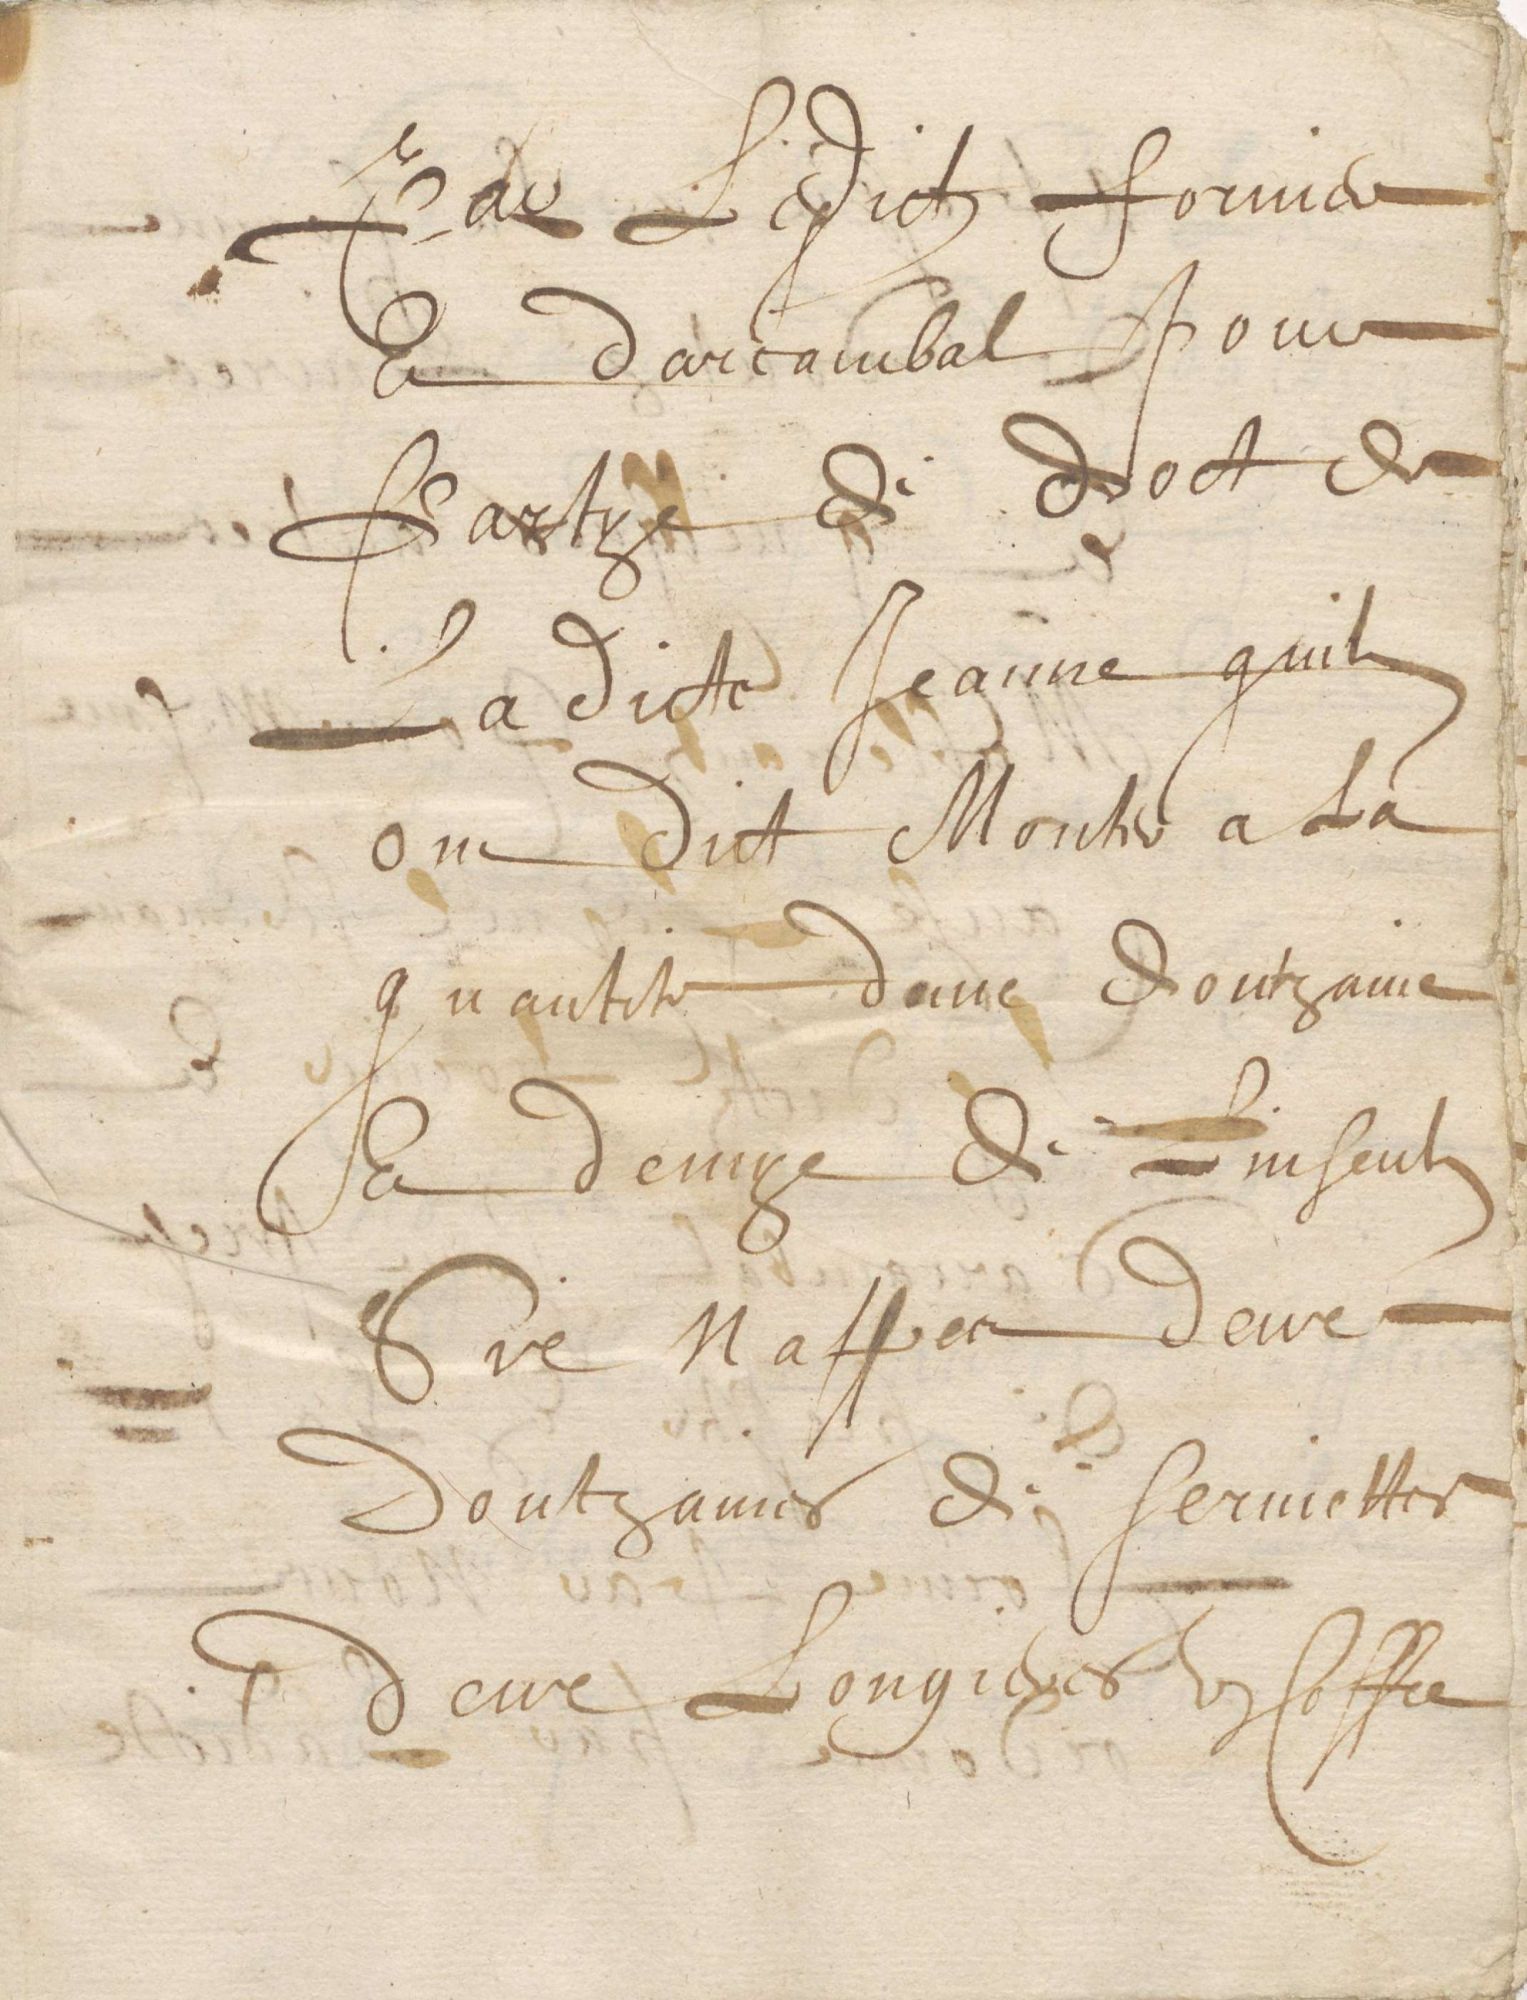 Par Ledict fornier
Et darcambal pour
Partye de dot de
La dicte Jeanne quilz
ont dict Monter a La
quantite dune doutzaine
Et demye de Linseulz
Une Nappe deux
doutzaines de serviettes
deux Longieres ung Coffre